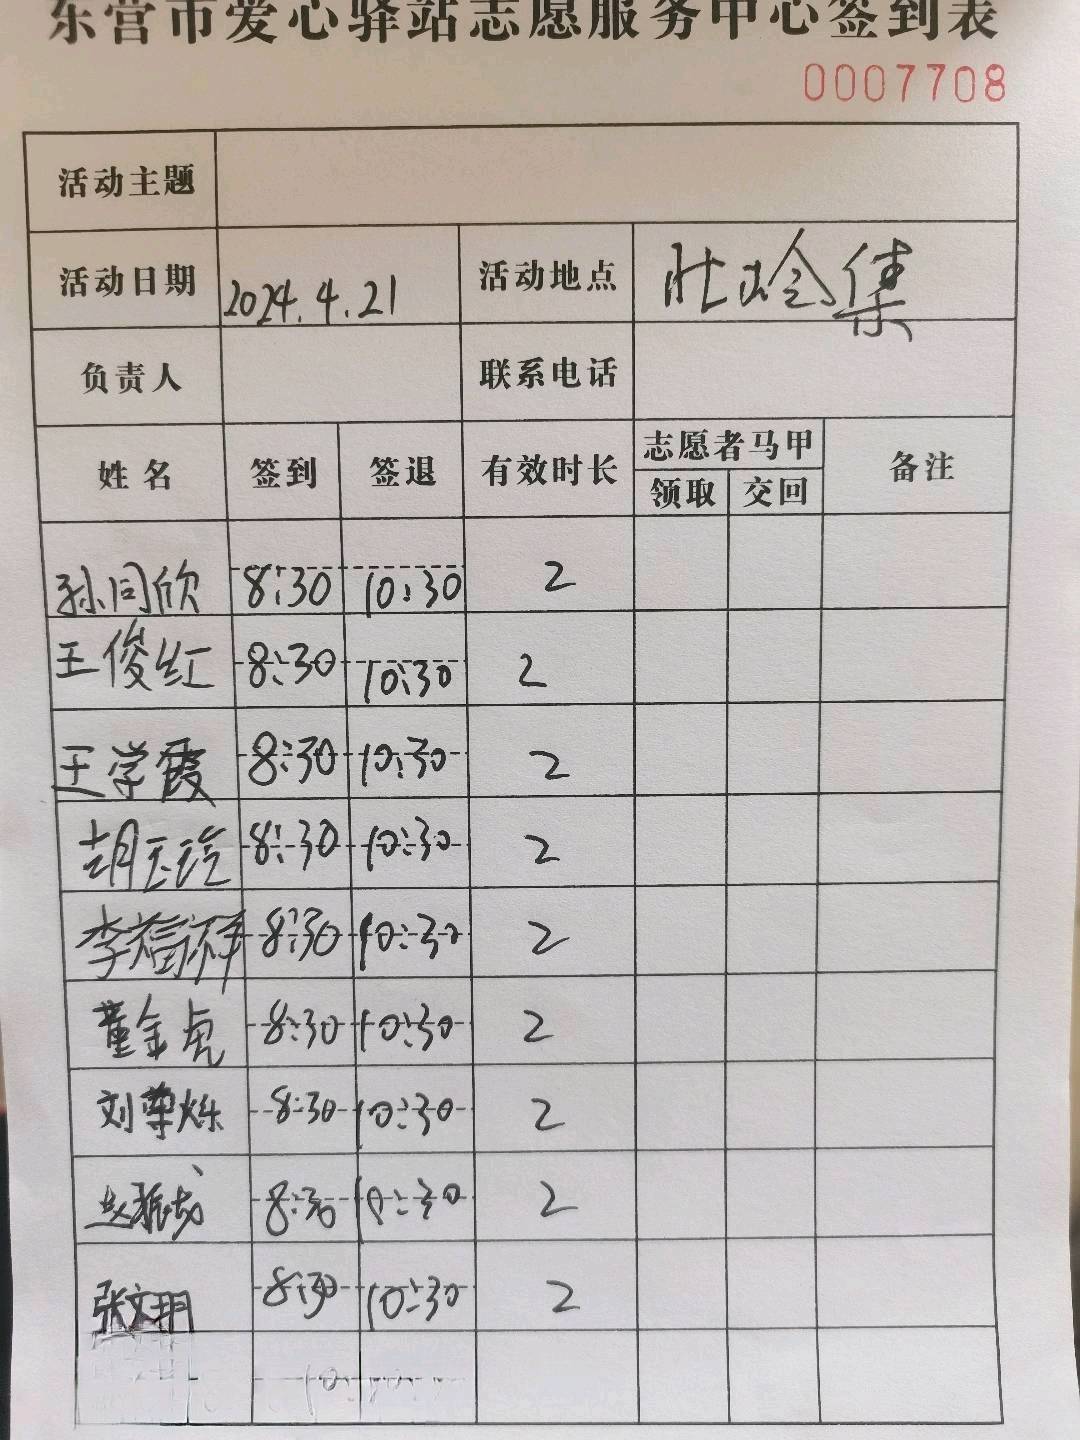 东营市爱心驿站志愿服务中心签到表
0007708
活动主题
活动日期 2024.4.21 活动地点 壮岭集
负责人 联系电话
姓名 签到 签退 有效时长 志愿者马甲 备注
领取 交回
孙同欣 8:30 10:30 2
王俊红 8:30 10:30 2
王学霞 8:30 10:30 2
胡玉 8:30 10:30 2
李福祥 8:30 10:30 2
董金虎 8:30 10:30 2
刘荣烁 8:30 10:30 2
赵振 8:30 10:30 2
张文玥 8:30 10:30 2